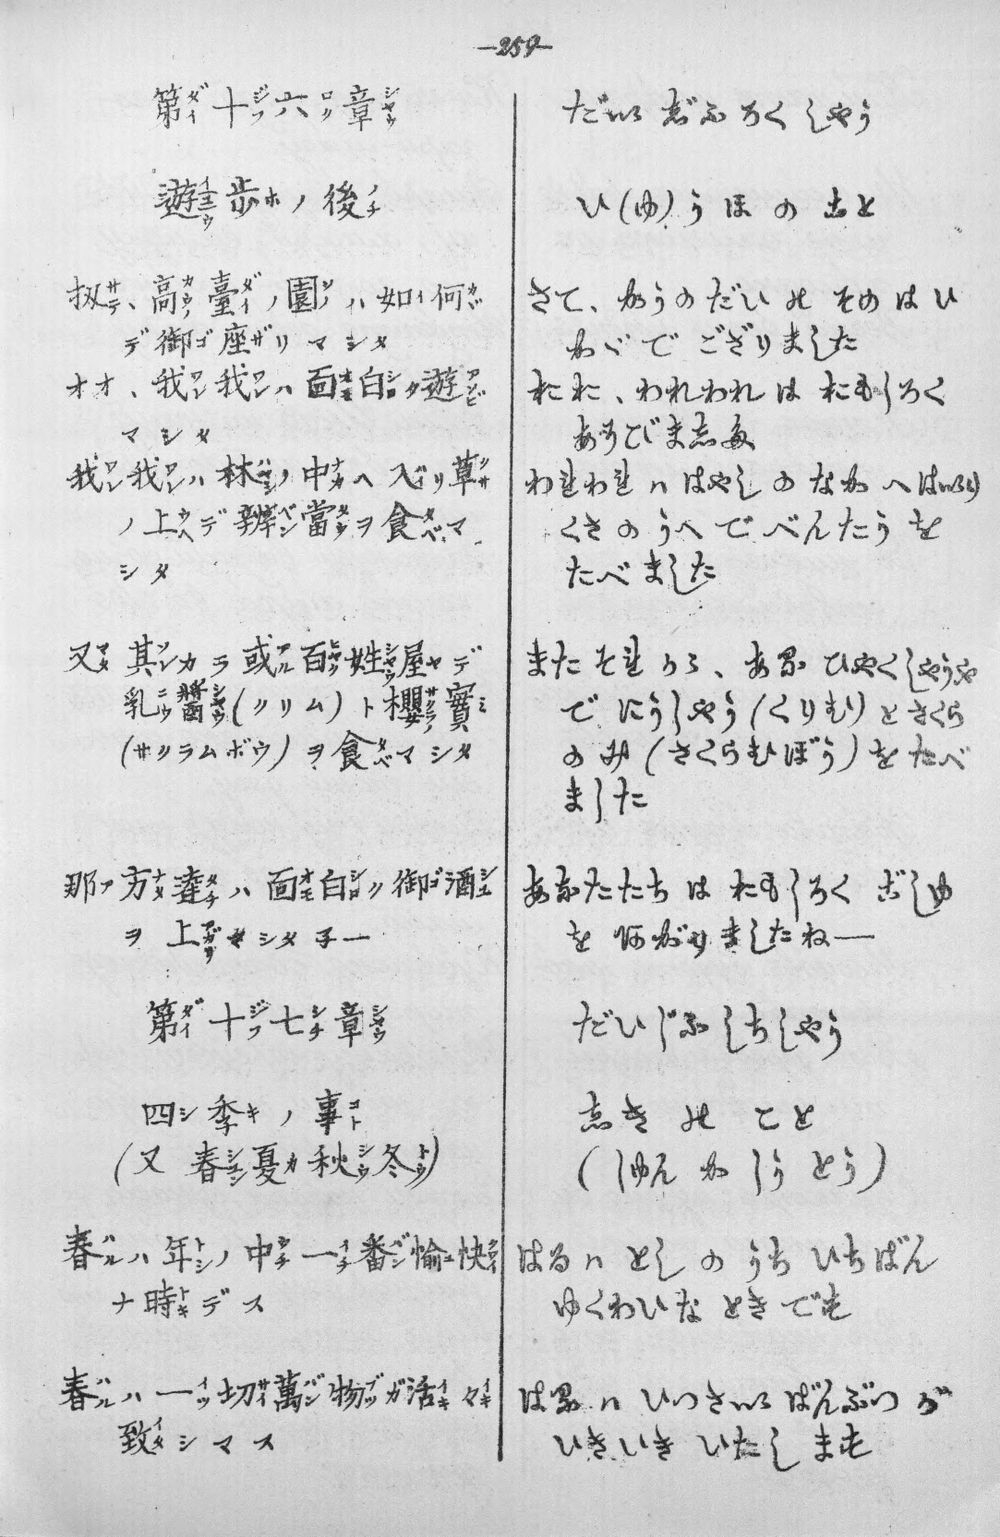 —259—
第十六章
遊歩ノ後
扨、高臺ノ園ノハ如何
デ御座リマシタ
オオ、我我ハ面白ク遊
マシタ
我我ハ林ノ中ヘ入リ草
ノ上デ辨當ヲ食マ
シタ
又其カラ或百姓屋デ
乳醬(クリム)ト櫻實
(サクラムボウ)ヲ食マシタ
那方達ハ面白ク御酒
ヲ上マシタ子ー
第十七章
四季ノ事
(又春夏秋冬)
春ハ年ノ中一番愉快
ナ時デス
春ハ一切萬物ガ活々
致シマス
だい志ふろくしやう
ひ(ゆ)うほのあと
さて、かうのだいのそのはひ
かゞでござりました
おお、われわれはおもしろく
あすびました
われわれハはやしのなかへはいり
くさのうへでべんたうを
たべました
またそれから、あるひやくしやうや
でにうしやう(くりむ)とさくら
のみ(さくらむぼう)をたべ
ました
あなたたちはおもしろくごしゆ
をあがりましたねー
だひじふしちしやう
志きのこと
(しゆんかしうとう)
はるハとしのうちいちばん
ゆくわひなときです
はるハひつさいばんぶつが
いきいきいたします